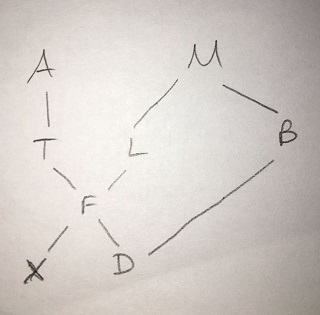 A M
T L B
F
X D